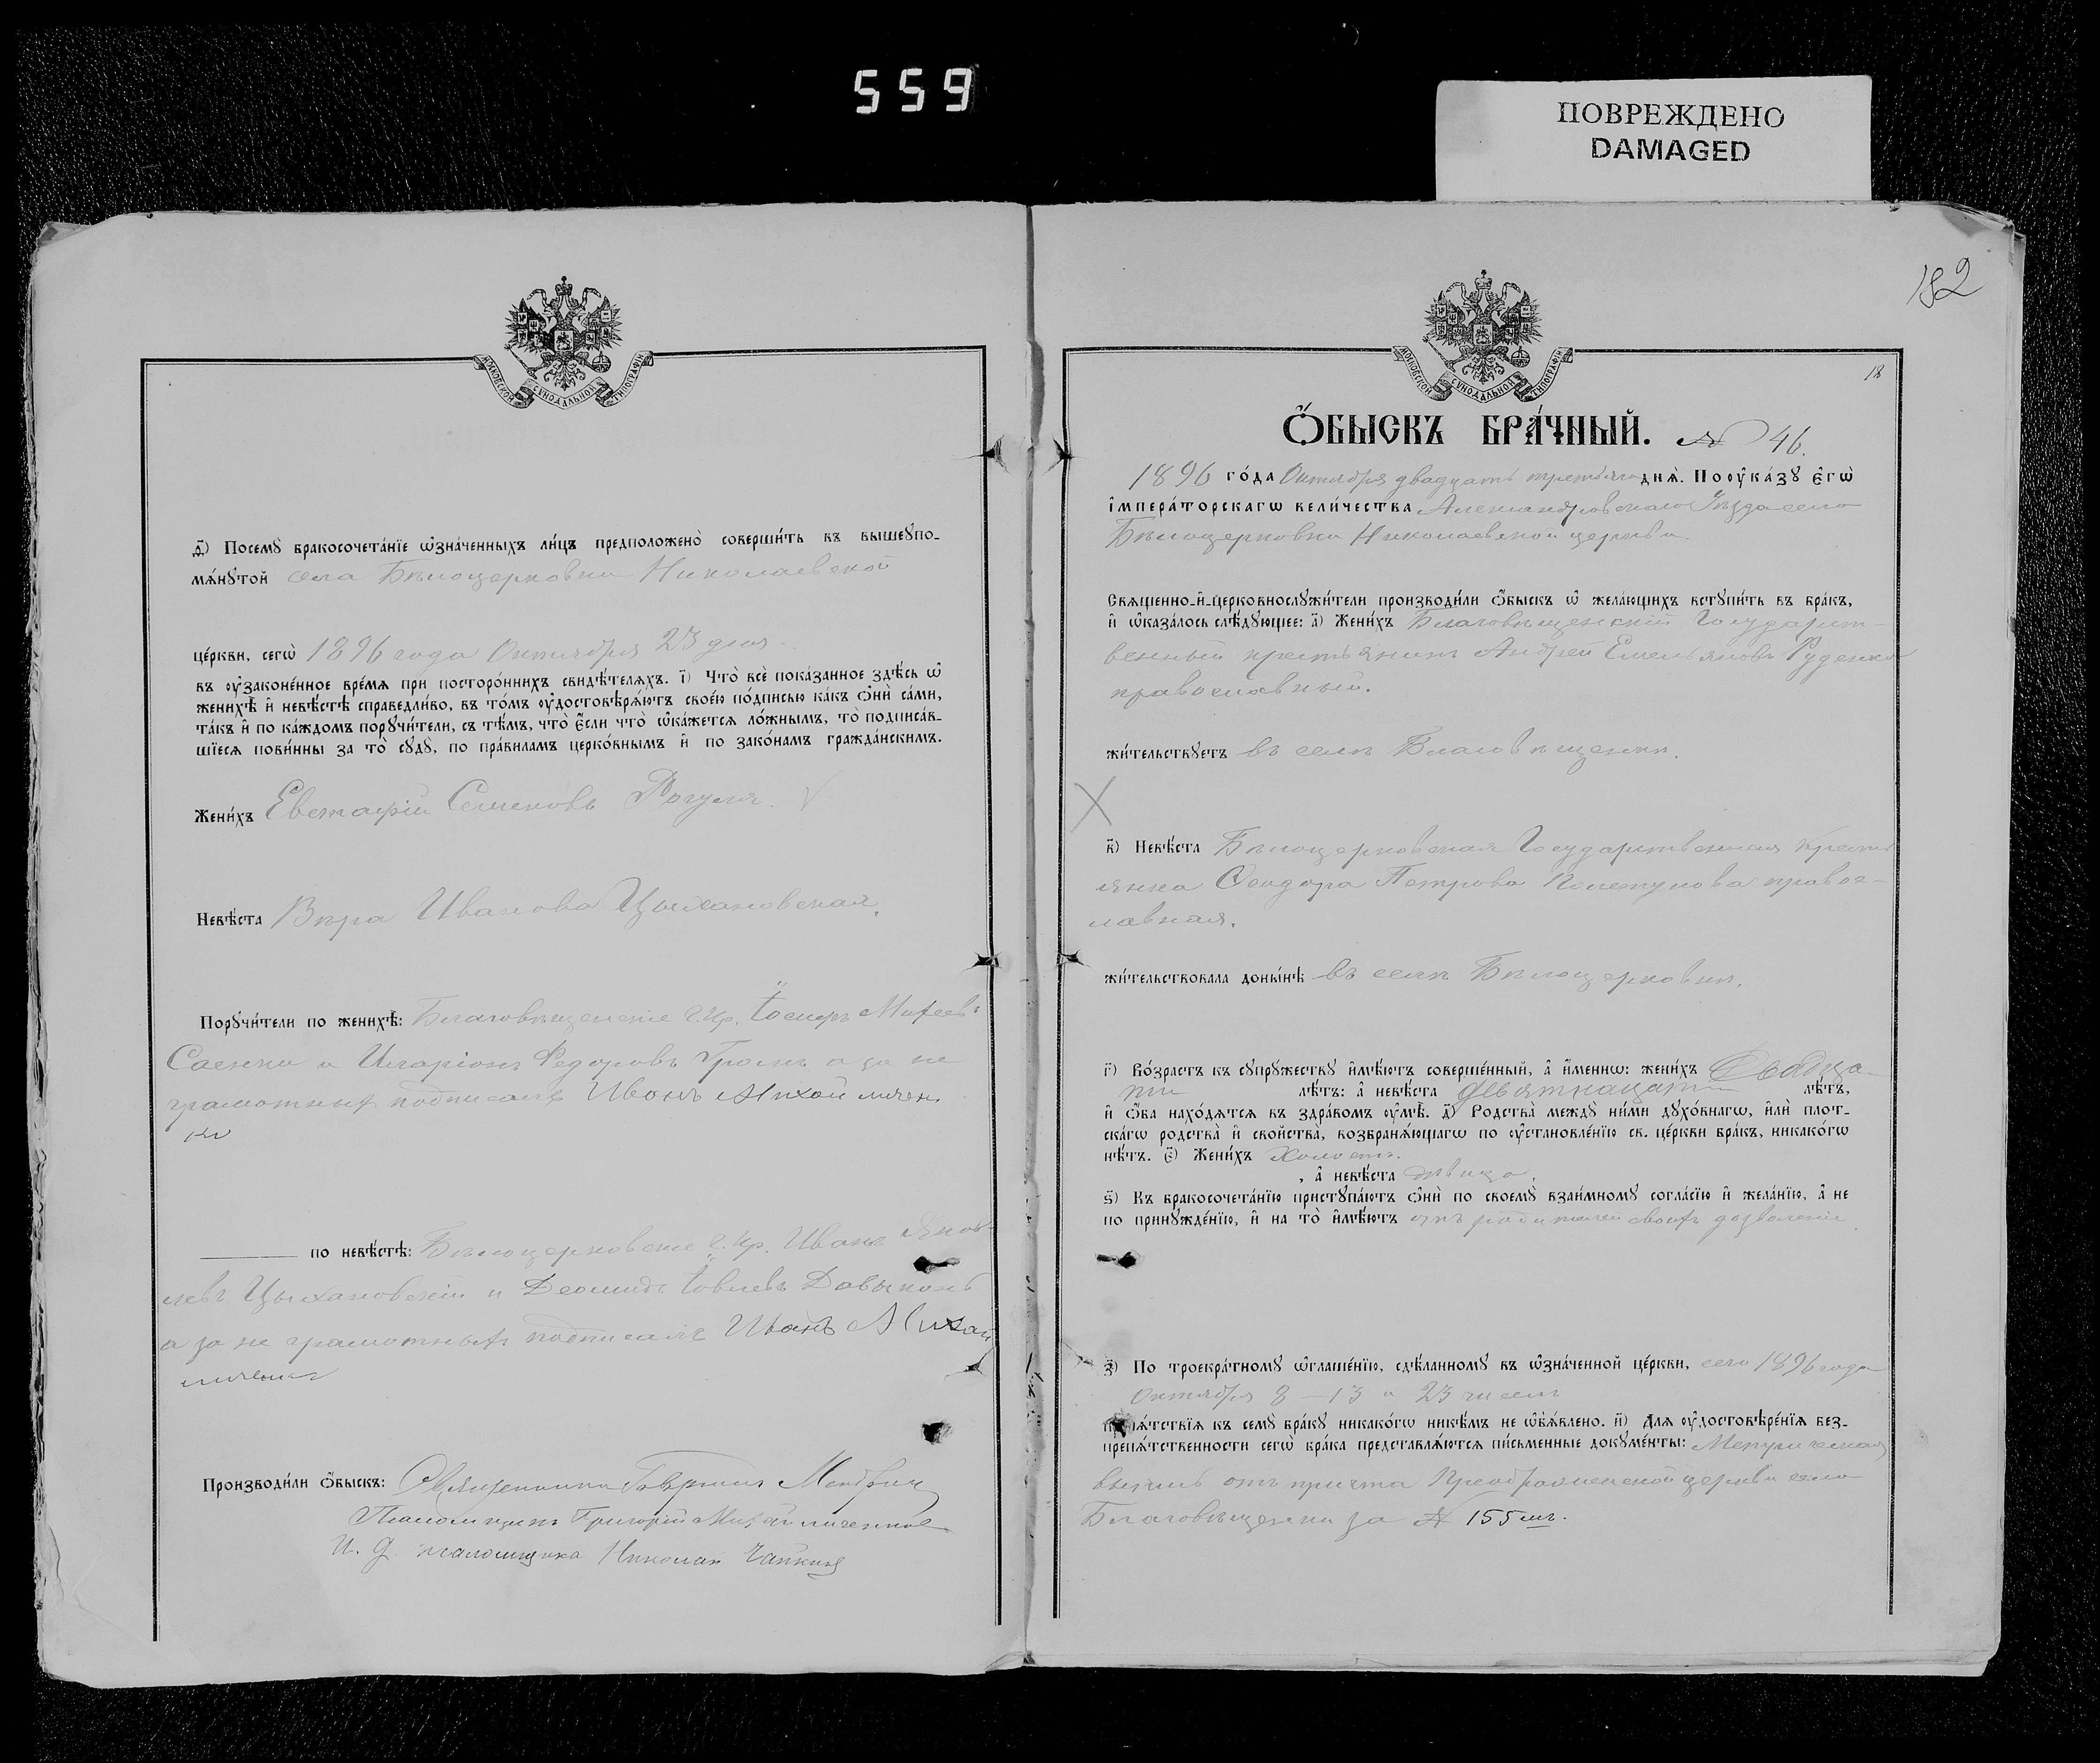 559
ПОВРЕЖДЕНО
DAMAGED
МОСКОВСКОЙ СѴНОДАЛЬНОЙ ТИПОГРАФІИ
ѳ҃) Посемꙋ̀ бракосочета́нїе ѡ҆зна́ченныхъ ли́цъ предположено̀ соверши́ть въ вышеꙋпо-
мѧ́нꙋтой села Бѣлоцерковки Николаевской
це́ркви, сегѡ̀ 1896 года Октября 23 дня.
въ ᲂу҆законе́нное вре́мѧ при посторо́ннихъ свидѣ́телѧхъ. і҃) Что̀ всѐ пока́занное здѣ́сь ѡ҆
женихѣ̀ и҆ невѣ́стѣ справедли́во, въ то́мъ ᲂу҆достовѣрѧ́ютъ свое́ю по́дписью ка́къ ѻ҆нѝ са́ми,
та́къ и҆ по ка́ждомъ порꙋчи́тели, съ тѣ́мъ, что̀ є҆́сли что̀ ѡ҆ка́жетсѧ ло́жнымъ, то̀ подписа́в-
шїесѧ пови́нны за то̀ сꙋдꙋ̀, по пра́виламъ церко́внымъ и҆ по зако́намъ гражда́нскимъ.
Жени́хъ Евстафій Семеновъ Рогуля. V
Невѣ́ста Вѣра Иванова Цыхановская.
Порꙋчи́тели по женихѣ̀: Благовѣщенскіе г. кр. Іосифъ Матѳеевъ
Саенко и Иларіонъ Федоровъ Громъ а за не
грамотныхъ подписалъ Иванъ Михайличен
ко
по невѣ́стѣ: Бѣлоцерковскіе г. кр. Иванъ Яков-
левъ Цыхановскій и Деомидъ Іовлевъ
а за не грамотныхъ подписалъ Иванъ Михай
личенко
Производи́ли ѻ҆́быскъ: Священникъ Гавріилъ
Псаломщикъ Григорій Михайличенко
И. д. псаломщика Николай Чайкинъ
182
МОСКОВСКОЙ СѴНОДАЛЬНОЙ ТИПОГРАФІИ
18
Ѻ҆́БЫСКЪ БРА́ЧНЫЙ. № 46.
1896 го́да Октября двадцать третьяго днѧ̀. По ᲂу҆ка́зꙋ є҆гѡ̀
і҆мпера́торскагѡ вели́чества Александровскаго Уѣзда села
Бѣлоцерковки Николаевской церкви.
Свѧще́нно-и҆-церковнослꙋжи́тели производи́ли ѻ҆́быскъ ѡ҆ жела́ющихъ встꙋпи́ть въ бра́къ,
и҆ ѡ҆каза́лось слѣ́дꙋющее: а҃) Жени́хъ Благовѣщенскій Государст-
венный крестьянинъ Андрей Емельяновъ Руденко
православный.
жи́тельствꙋетъ въ селѣ Благовѣщенкѣ.
X
в҃) Невѣ́ста Бѣлоцерковская Государственная кресть
янка Ѳеодора Петрова правос-
лавная.
жи́тельствовала доны́нѣ въ селѣ Бѣлоцерковкѣ.
г҃) Во́зрастъ къ сꙋпрꙋ́жествꙋ и҆мѣ́ютъ соверше́нный, а҆ и҆́менно: жени́хъ Двадца-
ти лѣ́тъ: а҆ невѣ́ста девятнадцати лѣ́тъ,
и҆ ѻ҆́ба нахо́дѧтсѧ въ здра́вомъ ᲂу҆мѣ̀. д҃) Родства̀ междꙋ̀ ни́ми дꙋхо́внагѡ, и҆лѝ плот-
ска́гѡ родства̀ и҆ сво́йства, возбранѧ́ющагѡ по ᲂу҆становле́нїю св. це́ркви бра́къ, никако́гѡ
нѣ́тъ. є҃) Жени́хъ Холостъ.
, а҆ невѣ́ста дѣвица.
ѕ҃) Къ бракосочета́нїю пристꙋпа́ютъ ѻ҆нѝ по своемꙋ̀ взаи́мномꙋ согла́сїю и҆ жела́нїю, а҆ не
по принꙋжде́нїю, и҆ на то̀ и҆мѣ́ютъ отъ родителей своихъ дозволеніе
з҃) По троекра́тномꙋ ѡ҆глаше́нїю, сдѣ́ланномꙋ въ ѡ҆зна́ченной це́ркви, сего 1896 года
Октября 8 – 13 и 23 чиселъ
препѧ́тствїѧ къ семꙋ̀ бра́кꙋ никако́гѡ никѣ́мъ не ѡ҆б̾ѧ́влено. и҃) Длѧ ᲂу҆достовѣре́нїѧ без-
препѧ́тственности сегѡ̀ бра́ка представлѧ́ютсѧ пи́сьменные докꙋме́нты: Метрическая
выпись отъ причта Преображенской церкви села
Благовѣщенки за № 155 мъ.